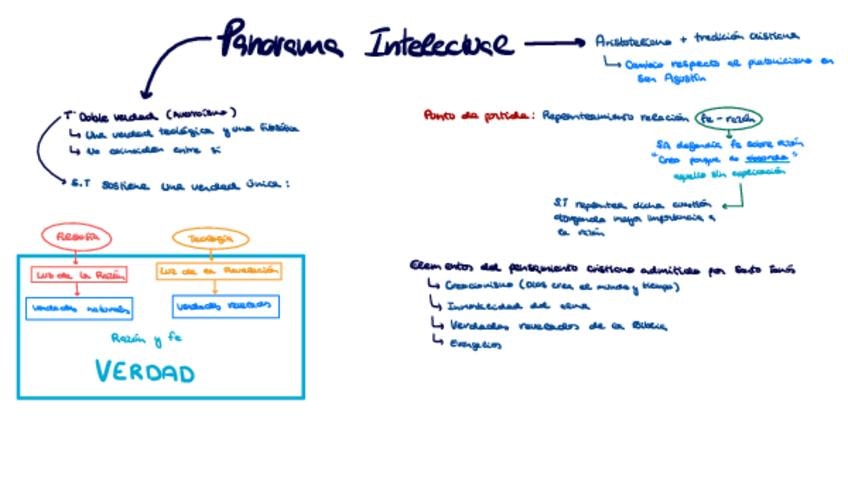 Panorama Intelectual
Aristotelismo + tradición cristiana
Cambio respecto al platonicismo en
San Agustín
T. Doble verdad (Averroísmo)
Una verdad teológica y una filosófica
No coinciden entre sí
S.T sostiene una verdad única:
Filosofía
Teología
Luz de la Razón
Luz de la Revelación
verdades naturales
verdades reveladas
Razón y fe
VERDAD
Punto de partida: Replanteamiento relación fe-razón
SA defendía fe sobre razón
"Creo porque es absurdo"
aquello sin explicación
S.T replantea dicha cuestión
otorgando mayor importancia a
la razón
Elementos del pensamiento cristiano admitidos por Santo Tomás
Creacionismo (Dios crea el mundo y tiempo)
Inmortalidad del alma
Verdades reveladas de la Biblia
Evangelios